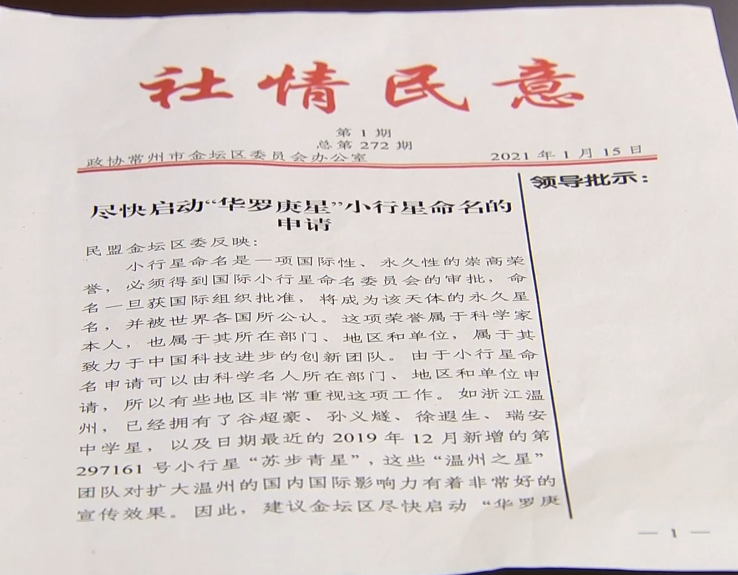 社情民意
第1期
总第272期
政协常州市金坛区委员会办公室 2021年1月15日
尽快启动“华罗庚星”小行星命名的
申请
领导批示：
民盟金坛区委反映：
小行星命名是一项国际性、永久性的崇高荣
誉，必须得到国际小行星命名委员会的审批，命
名一旦获国际组织批准，将成为该天体的永久星
名，并被世界各国所公认。这项荣誉属于科学家
本人，也属于其所在部门、地区和单位，属于其
致力于中国科技进步的创新团队。由于小行星命
名申请可以由科学名人所在部门、地区和单位申
请，所以有些地区非常重视这项工作。如浙江温
州，已经拥有了谷超豪、孙义燧、徐遐生、瑞安
中学星，以及日期最近的2019年12月新增的第
297161号小行星“苏步青星”，这些“温州之星”
团队对扩大温州的国内国际影响力有着非常好的
宣传效果。因此，建议金坛区尽快启动“华罗庚
— 1 —